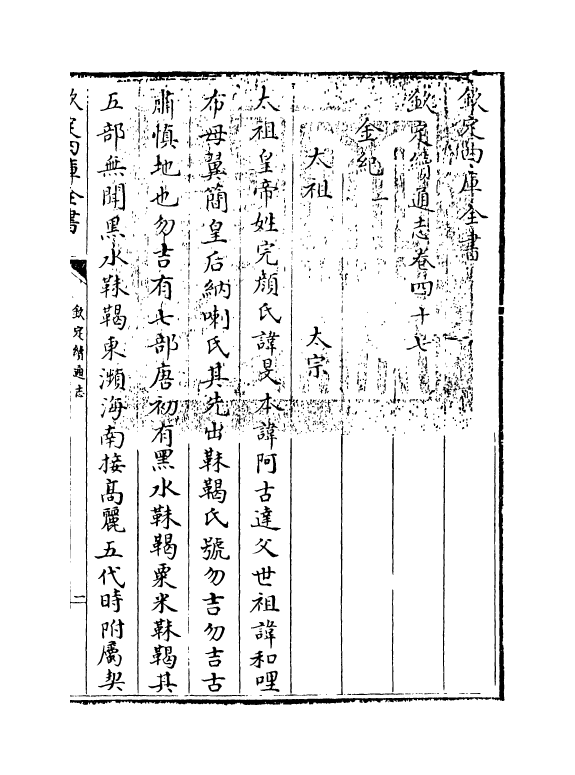 欽定四庫全書
欽定續通志卷四十七
金紀一
太祖　太宗
太祖皇帝姓完顔氏諱旻本諱阿古達父世祖諱和哩
布母翼簡皇后納喇氏其先出靺鞨氏號勿吉勿吉古
肅慎地也勿吉有七部唐初有黑水靺鞨粟米靺鞨其
五部無聞黑水靺鞨東瀕海南接高麗五代時附屬契
欽定四庫全書
欽定續通志